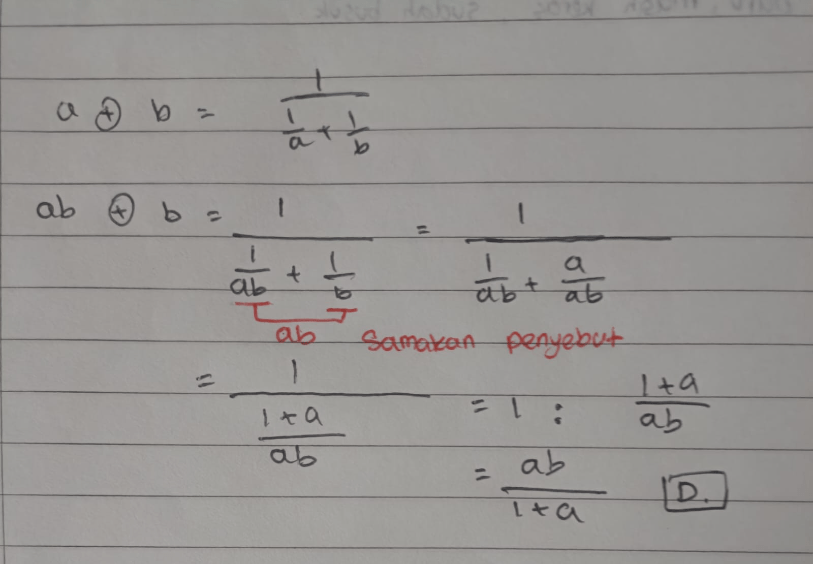 a ⊕ b = 1 / (1/a + 1/b)
ab ⊕ b = 1 / (1/ab + 1/b) = 1 / (1/ab + a/ab)
ab Samakan penyebut
= 1 / ((1+a)/ab) = 1 : (1+a)/ab
= ab / (1+a) D.